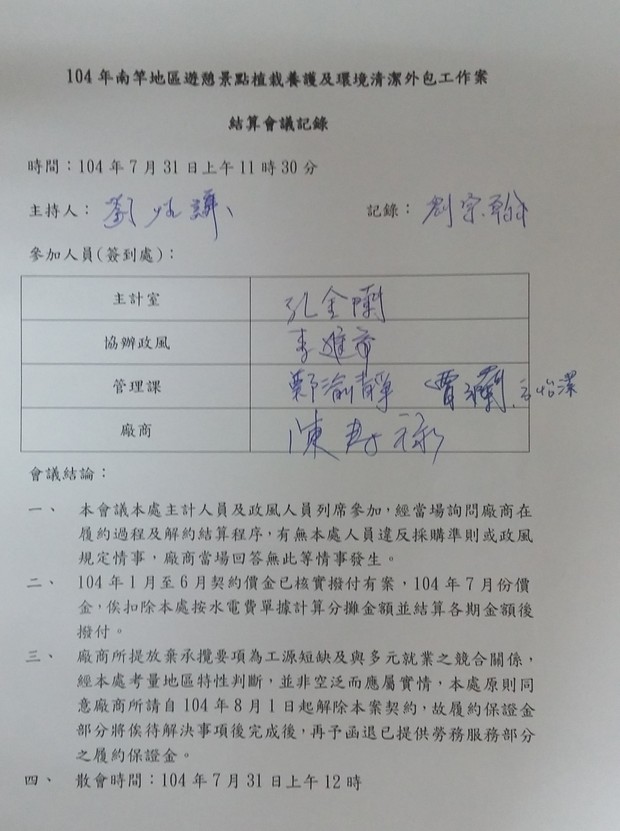 104 年南竿地區遊憩景點植栽養護及環境清潔外包工作案
結算會議記錄
時間：104 年 7 月 31 日上午 11 時 30 分
主持人： 劉
記錄： 劉宗翰
參加人員(簽到處)：
主計室 孔金
協辦政風 李
管理課 鄭渝靜 怡潔
廠商 陳
會議結論：
一、 本會議本處主計人員及政風人員列席參加，經當場詢問廠商在
履約過程及解約結算程序，有無本處人員違反採購準則或政風
規定情事，廠商當場回答無此等情事發生。
二、 104 年 1 月至 6 月契約價金已核實撥付有案，104 年 7 月份價
金，俟扣除本處按水電費單據計算分攤金額並結算各期金額後
撥付。
三、 廠商所提放棄承攬要項為工源短缺及與多元就業之競合關係，
經本處考量地區特性判斷，並非空泛而應屬實情，本處原則同
意廠商所請自 104 年 8 月 1 日起解除本案契約，故履約保證金
部分將俟待解決事項後完成後，再予函退已提供勞務服務部分
之履約保證金。
四、 散會時間：104 年 7 月 31 日上午 12 時